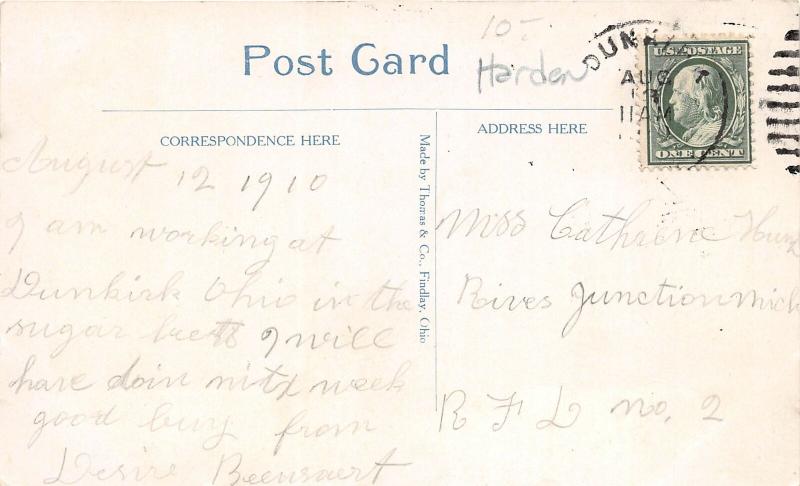 10-
Harden
Post Card
DUNK
AUG
11AM
U.S. POSTAGE
ONE CENT
CORRESPONDENCE HERE
ADDRESS HERE
Made by Thomas & Co., Findlay, Ohio
August 12 1910
I am working at
Dunkirk Ohio in the
sugar beets I will
have doin nitx week
good buy from
Desire Beensaert
Miss Cathrene
Rives Junction Mich
R F D no. 2